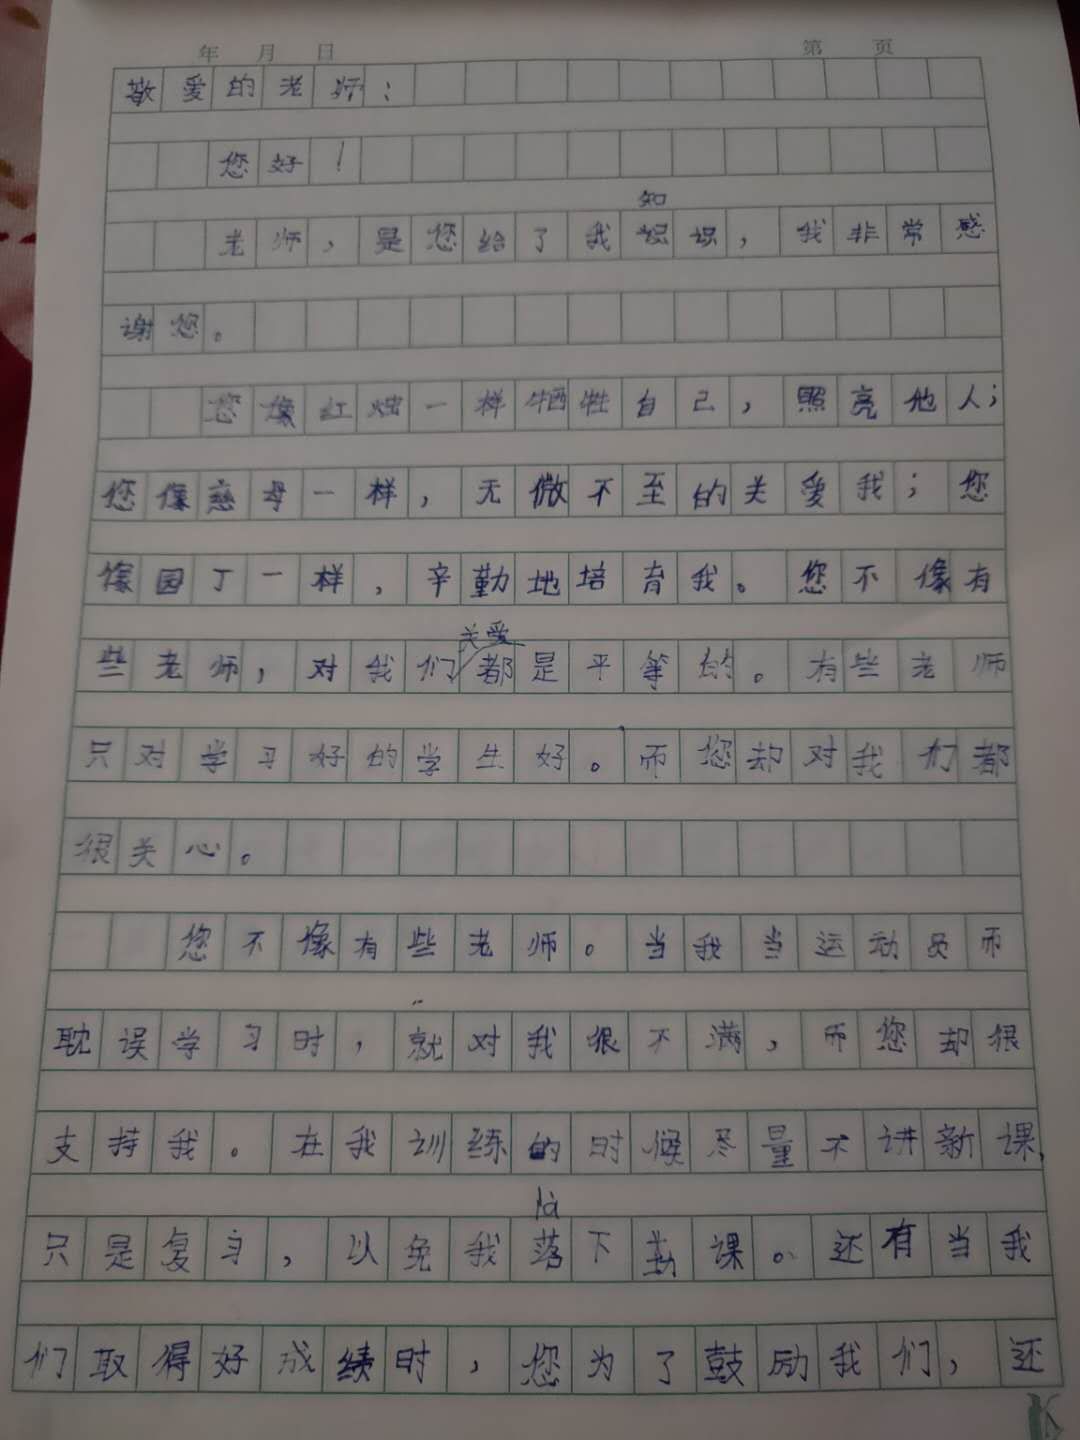 年 月 日 第 页
敬爱的老师：
您好！
知
老师，是您给了我识识，我非常感
谢您。
您像红烛一样牺牲自己，照亮他人；
您像慈母一样，无微不至的关爱我；您
像园丁一样，辛勤地培育我。您不像有
关爱
些老师，对我们都是平等的。有些老师
只对学习好的学生好。而您却对我们都
很关心。
您不像有些老师。当我当运动员而
耽误学习时，就对我很不满，而您却很
支持我。在我训练的时候尽量不讲新课，
là
只是复习，以免我落下功课。还有当我
们取得好成绩时，您为了鼓励我们，还